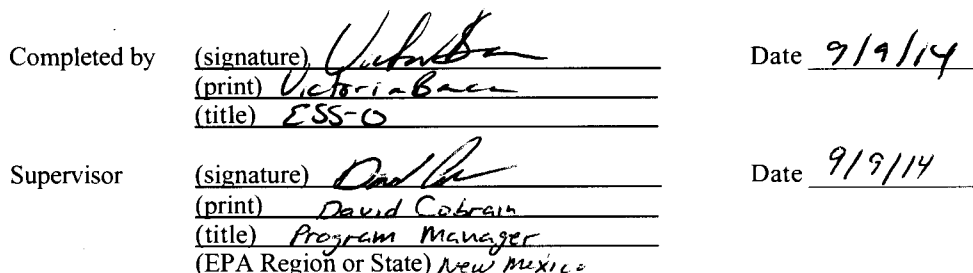 Completed by (signature) Date 9/9/14
(print) Victoria Baca
(title) ESS-O
Supervisor (signature) Date 9/9/14
(print) David Cobrain
(title) Program Manager
(EPA Region or State) New Mexico